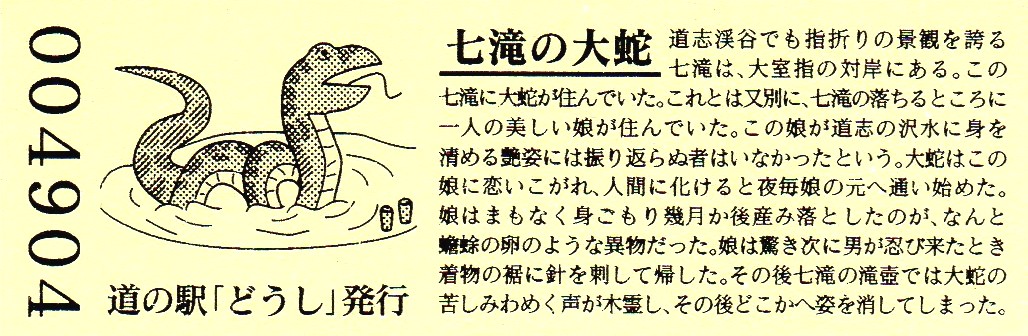 004904
道の駅「どうし」発行
七滝の大蛇
道志渓谷でも指折りの景観を誇る
七滝は、大室指の対岸にある。この
七滝に大蛇が住んでいた。これとは又別に、七滝の落ちるところに
一人の美しい娘が住んでいた。この娘が道志の沢水に身を
清める艶姿には振り返らぬ者はいなかったという。大蛇はこの
娘に恋いこがれ、人間に化けると夜毎娘の元へ通い始めた。
娘はまもなく身ごもり幾月か後産み落としたのが、なんと
蟾蜍の卵のような異物だった。娘は驚き次に男が忍び来たとき
着物の裾に針を刺して帰した。その後七滝の滝壺では大蛇の
苦しみわめく声が木霊し、その後どこかへ姿を消してしまった。